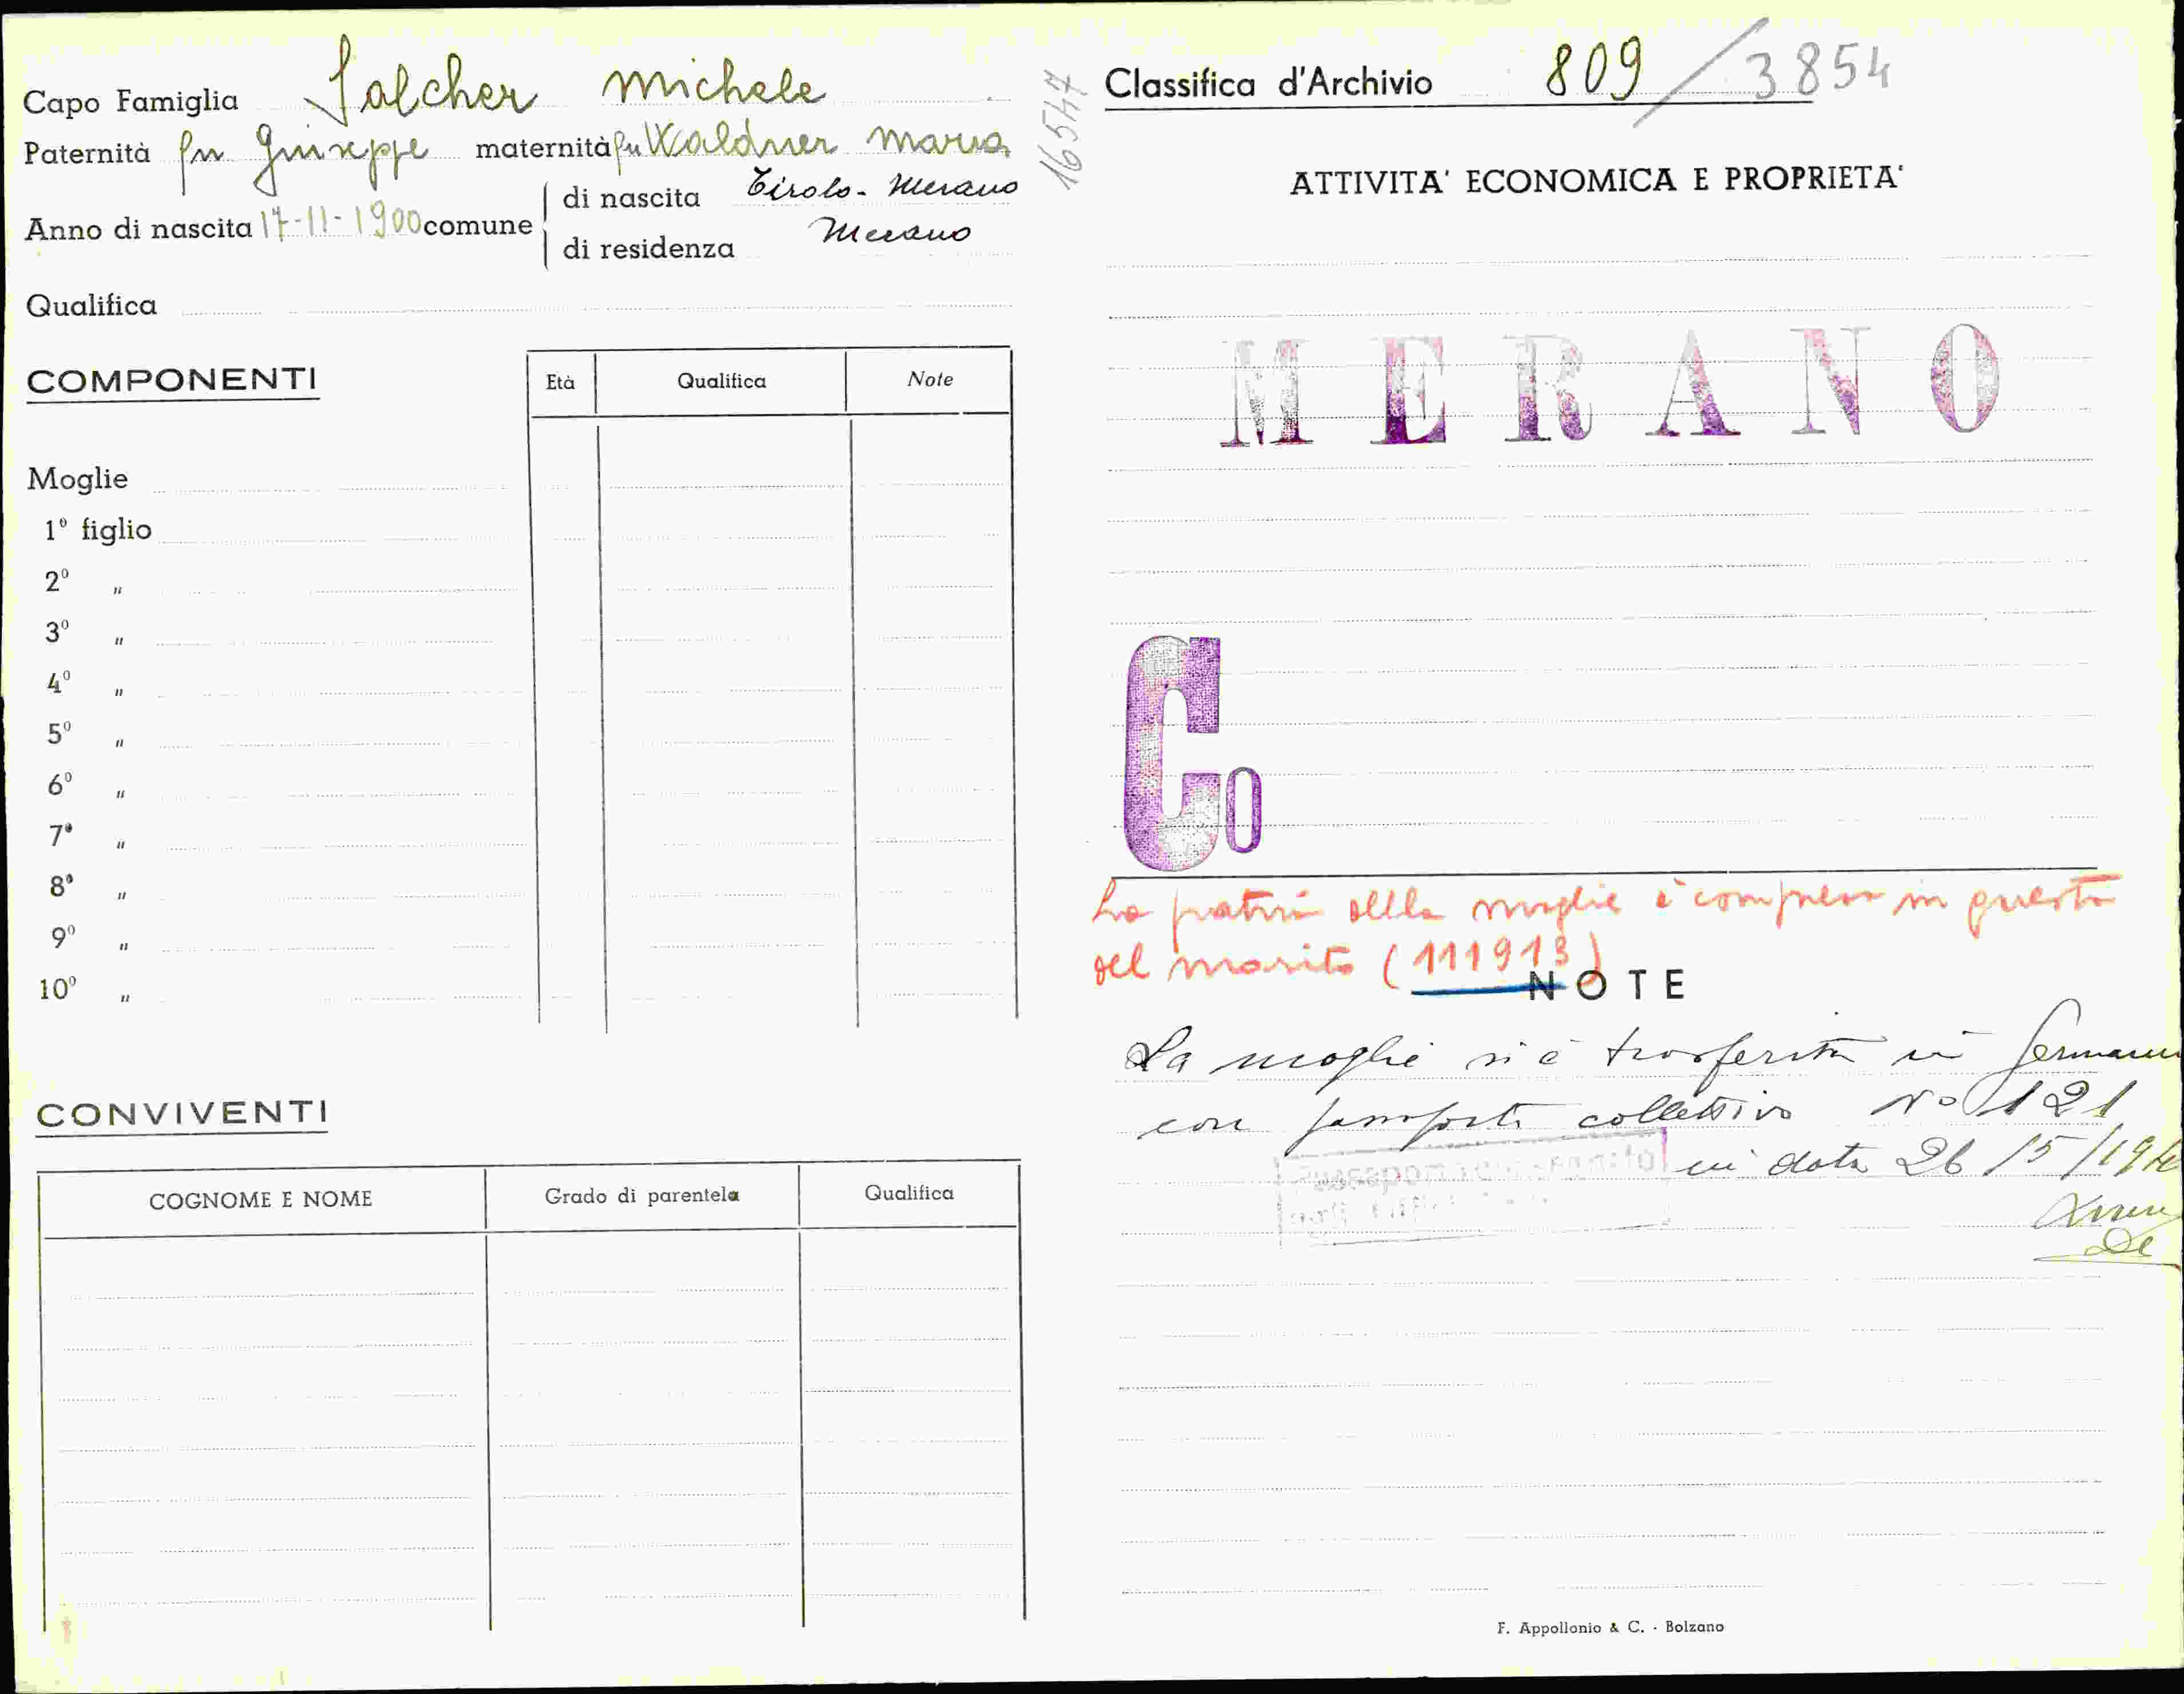 Capo Famiglia Salcher Michele
Paternità fu Giuseppe maternità fu Waldner Maria
Anno di nascita 17-11-1900 comune
di nascita Tirolo - Merano
di residenza Merano
Qualifica
COMPONENTI
Età Qualifica Note
Moglie
1º figlio
2º "
3º "
4º "
5º "
6º "
7º "
8º "
9º "
10º "
CONVIVENTI
COGNOME E NOME Grado di parentela Qualifica
16547
Classifica d'Archivio 809/3854
ATTIVITA' ECONOMICA E PROPRIETA'
MERANO
Co
La pratica della moglie è compresa in questa
del marito (111913)
NOTE
La moglie si è trasferita in
con passaporto collettivo Nº 121
in data 26/5/194
F. Appollonio & C. - Bolzano